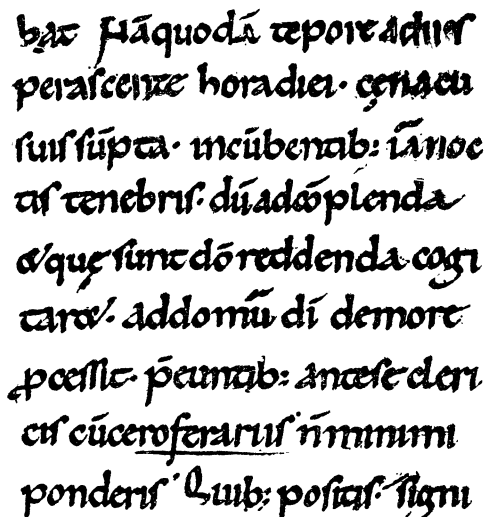 bat Nā quodā tepore adues
perascente hora diei· cęna cu
suis sūpta· incūbentib: iā noc
tis tenebris· dū ad cōplenda
&quę sunt dō reddenda cogi
tar&· ad domū dī de more
ꝓcessit· p̄euntib: ante se cleri
cis cū ceroferariis n̄ minimi
ponderis· Quib: positis· signi